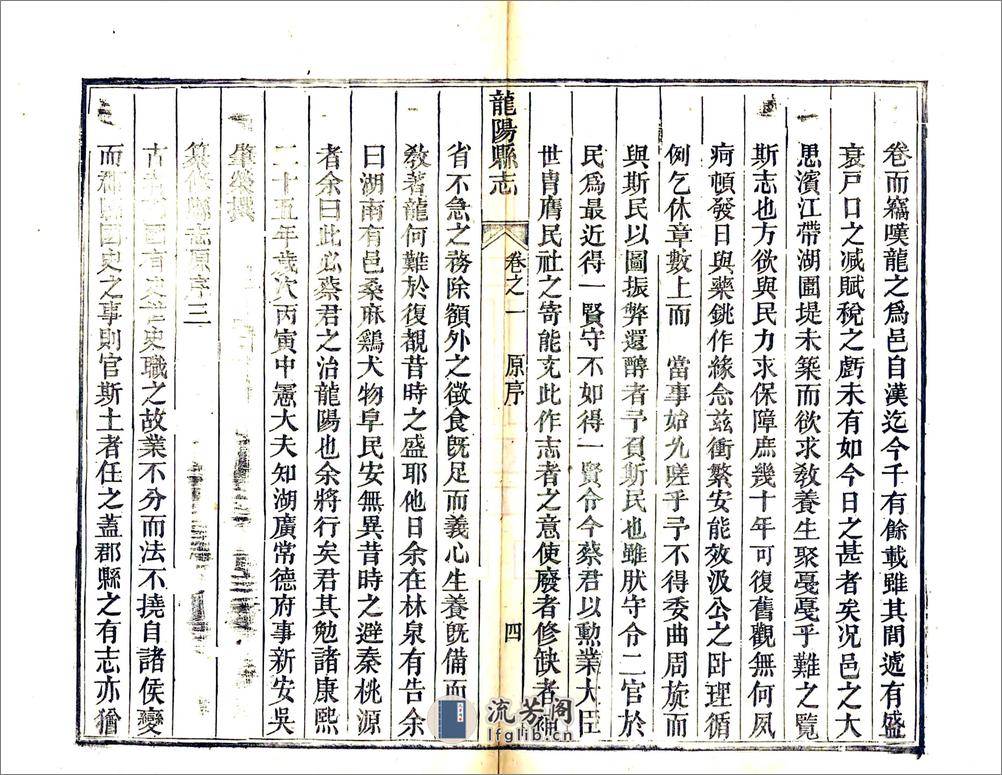 卷而竊嘆龍之爲邑自漢迄今千有餘載雖其間遞有盛
衰戸口之减賦稅之虧未有如今日之甚者矣况邑之大
思濱江帶湖圍堤未築而欲求敎養生聚戞戞乎難之覽
斯志也方欲與民力求保障庶幾十年可復舊觀無何夙
疴頓發日與藥銚作緣念兹衝繁安能效汲公之卧理循
例乞休章數上而 當事始允嗟乎予不得委曲周旋而
與斯民以圖振弊還醇者予負斯民也雖肰守令二官於
民爲最近得一賢守不如得一賢令今蔡君以勳業大臣
世胄膺民社之寄能充此作志者之意使廢者修缺者備
龍陽縣志 卷之一 原序 四
省不急之務除額外之徵食旣足而義心生養旣備而
敎著龍何難於復覩昔時之盛耶他日余在林泉有告余
曰湖南有邑桑麻鷄犬物阜民安無異昔時之避秦桃源
者余曰此必蔡君之治龍陽也余將行矣君其勉諸康熙
二十五年歲次丙寅中憲大夫知湖廣常德府事新安吳
肇榮撰
纂修縣志原序三
古 國有史 史職之故業不分而法不撓自諸侯變
而郡縣國史之事則官斯土者任之蓋郡縣之有志亦猶
流芳阁
lfglib.cn